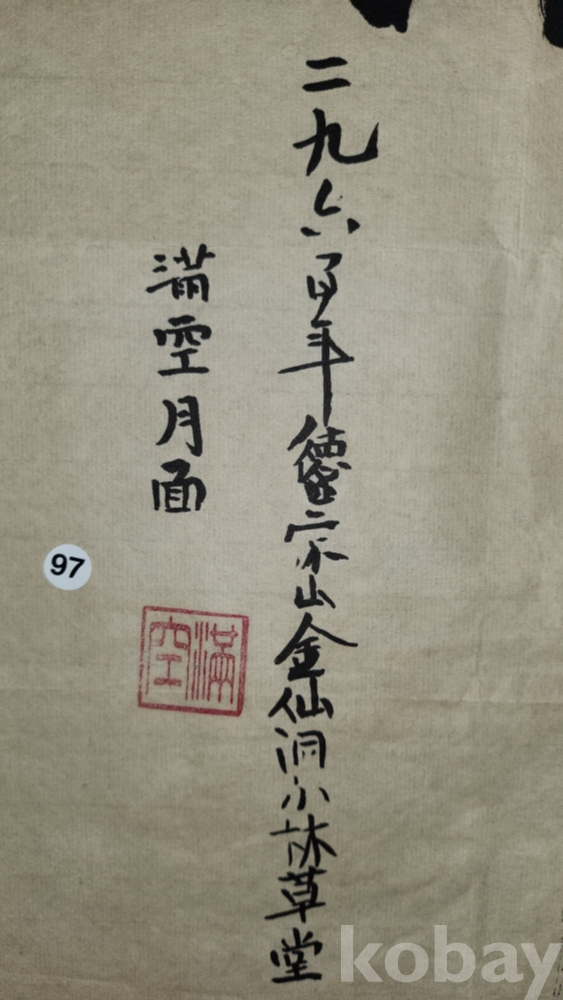 二九六百年德崇山金仙洞小林草堂
滿空月面
滿空
97
kobay